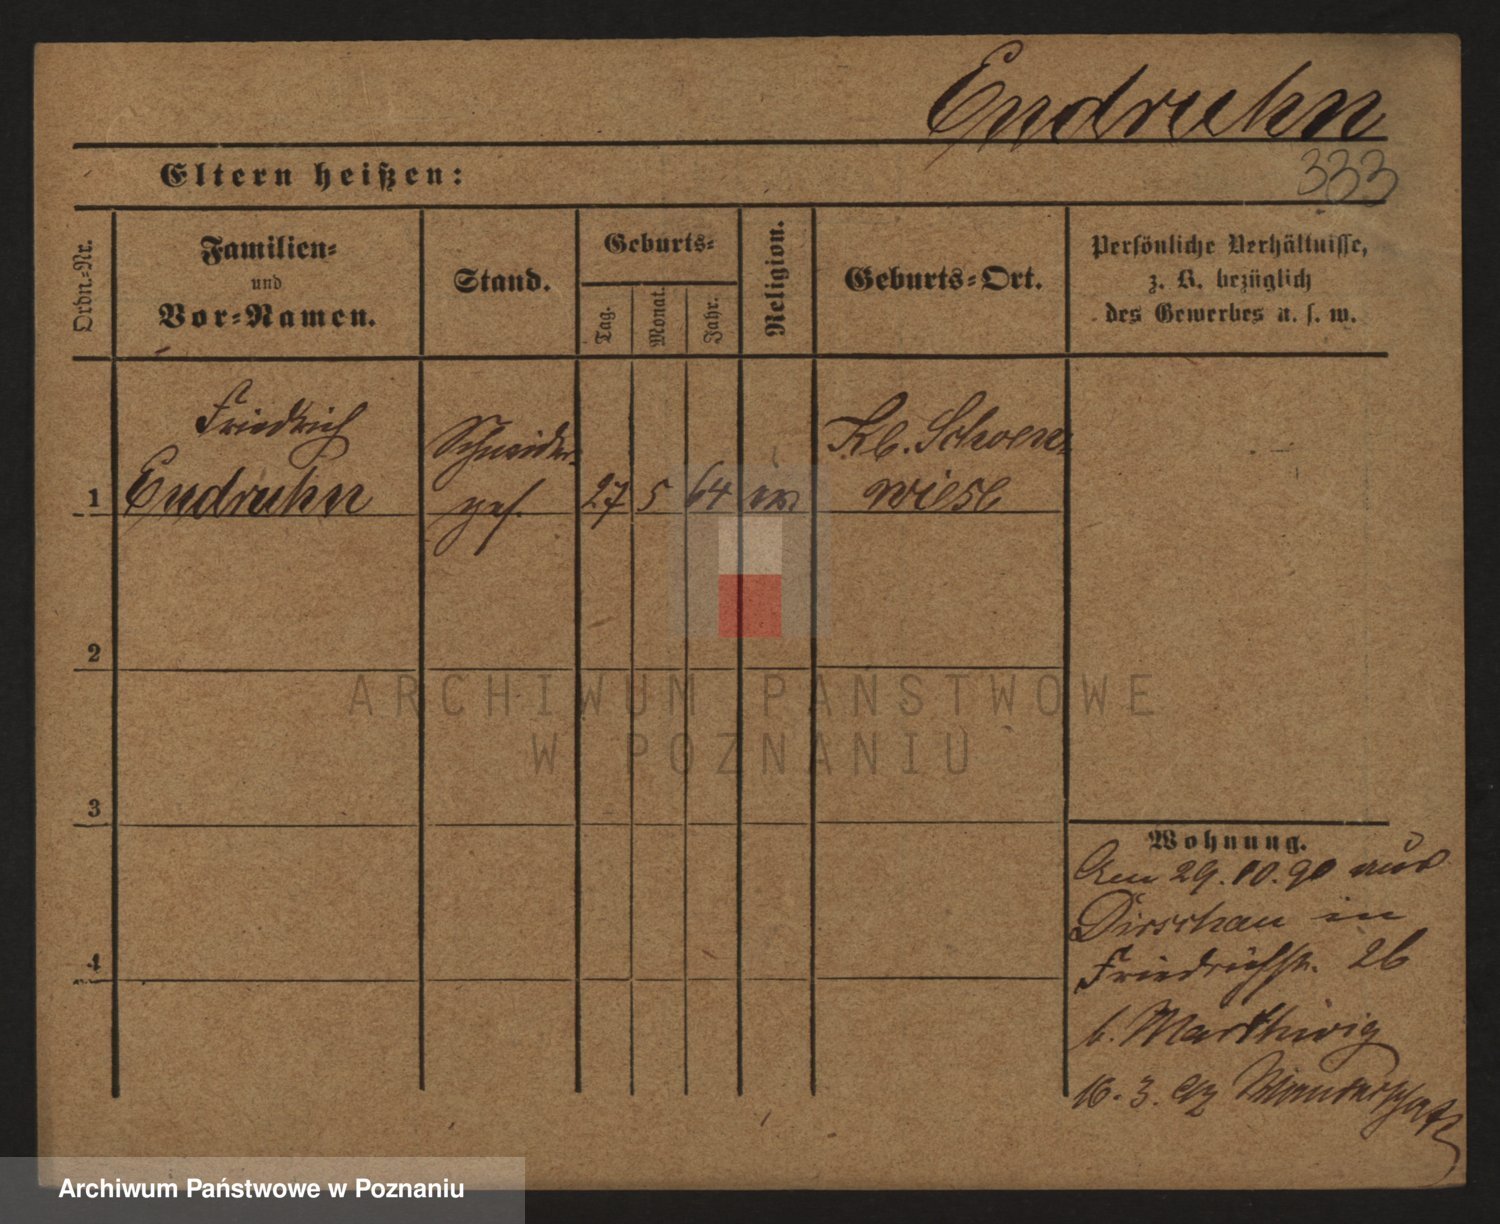 Endruhn
333
Eltern heißen:
Ordn.-Nr.
Familien-
und
Vor-Namen.
Stand.
Geburts-
Tag.
Monat.
Jahr.
Religion.
Geburts-Ort.
Persönliche Verhältnisse,
z. B. bezüglich
des Gewerbes u. s. w.
1
Friedrich
Endruhn
Schneider-
ges.
27
5
64
ev
Kl. Schoen-
wiese
2
3
4
Wohnung.
Am 29.10.90 aus
Dirschau in
Friedrichstr. 26
b.
16. 3. Wanderschaft
ARCHIWUM PAŃSTWOWE
W POZNANIU
Archiwum Państwowe w Poznaniu